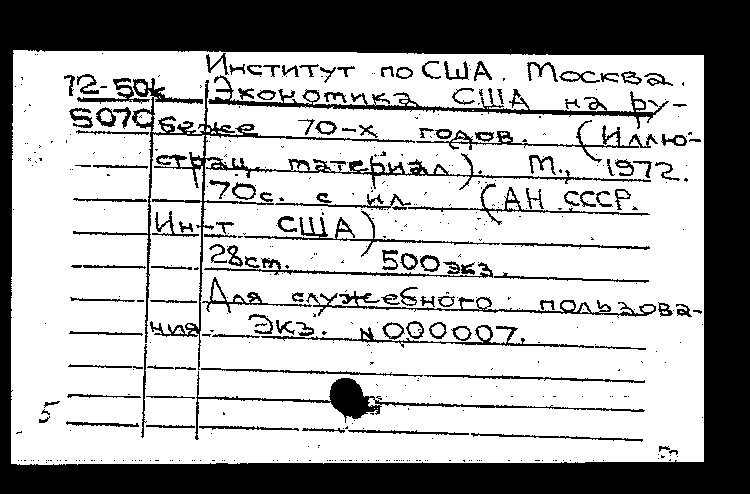 Институт по США. Москва.
72-50к Экономика США на ру-
5070 беже 70-х годов. (Иллю-
страц. материал). М., 1972.
70с. с ил. (АН СССР.
Ин-т США).
28ст. 500 экз.
Для служебного пользова-
ния. Экз. №000007.
5